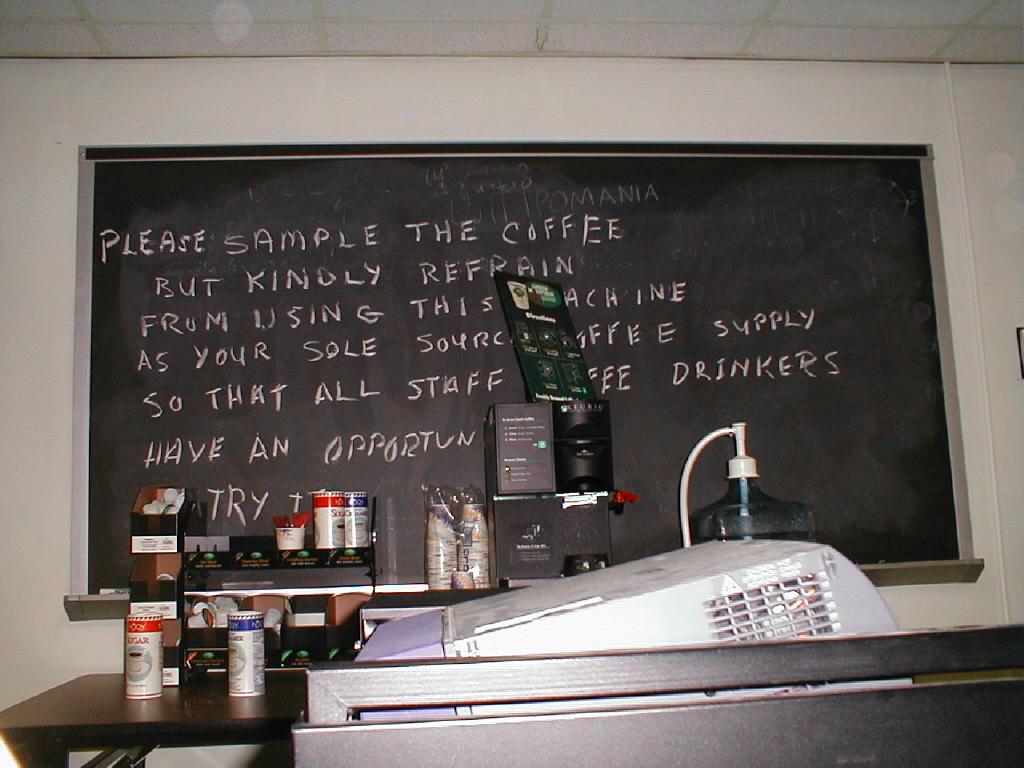 POMANIA
PLEASE SAMPLE THE COFFEE
BUT KINDLY REFRAIN
FROM USING THIS ACHINE
AS YOUR SOLE SOURC OFFEE SUPPLY
SO THAT ALL STAFF FEE DRINKERS
HAVE AN OPPORTUN
TRY
Directions
KEURIG
SUGAR